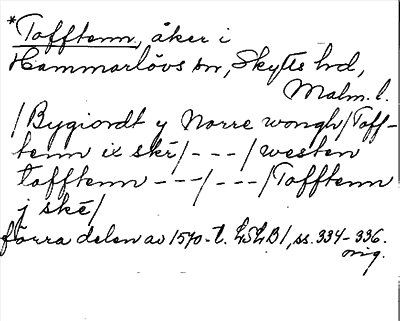 *Tofftenn, åker i
Hammarlövs sn, Skytts hd,
Malm. l.
/Bygiordt y Norre wongh/Toff-
tenn ix skē/---/westen
tofftenn ---/---/Tofftenn
j skē/
förra delen av 1570-t. LSLB1, ss. 334-336.
orig.